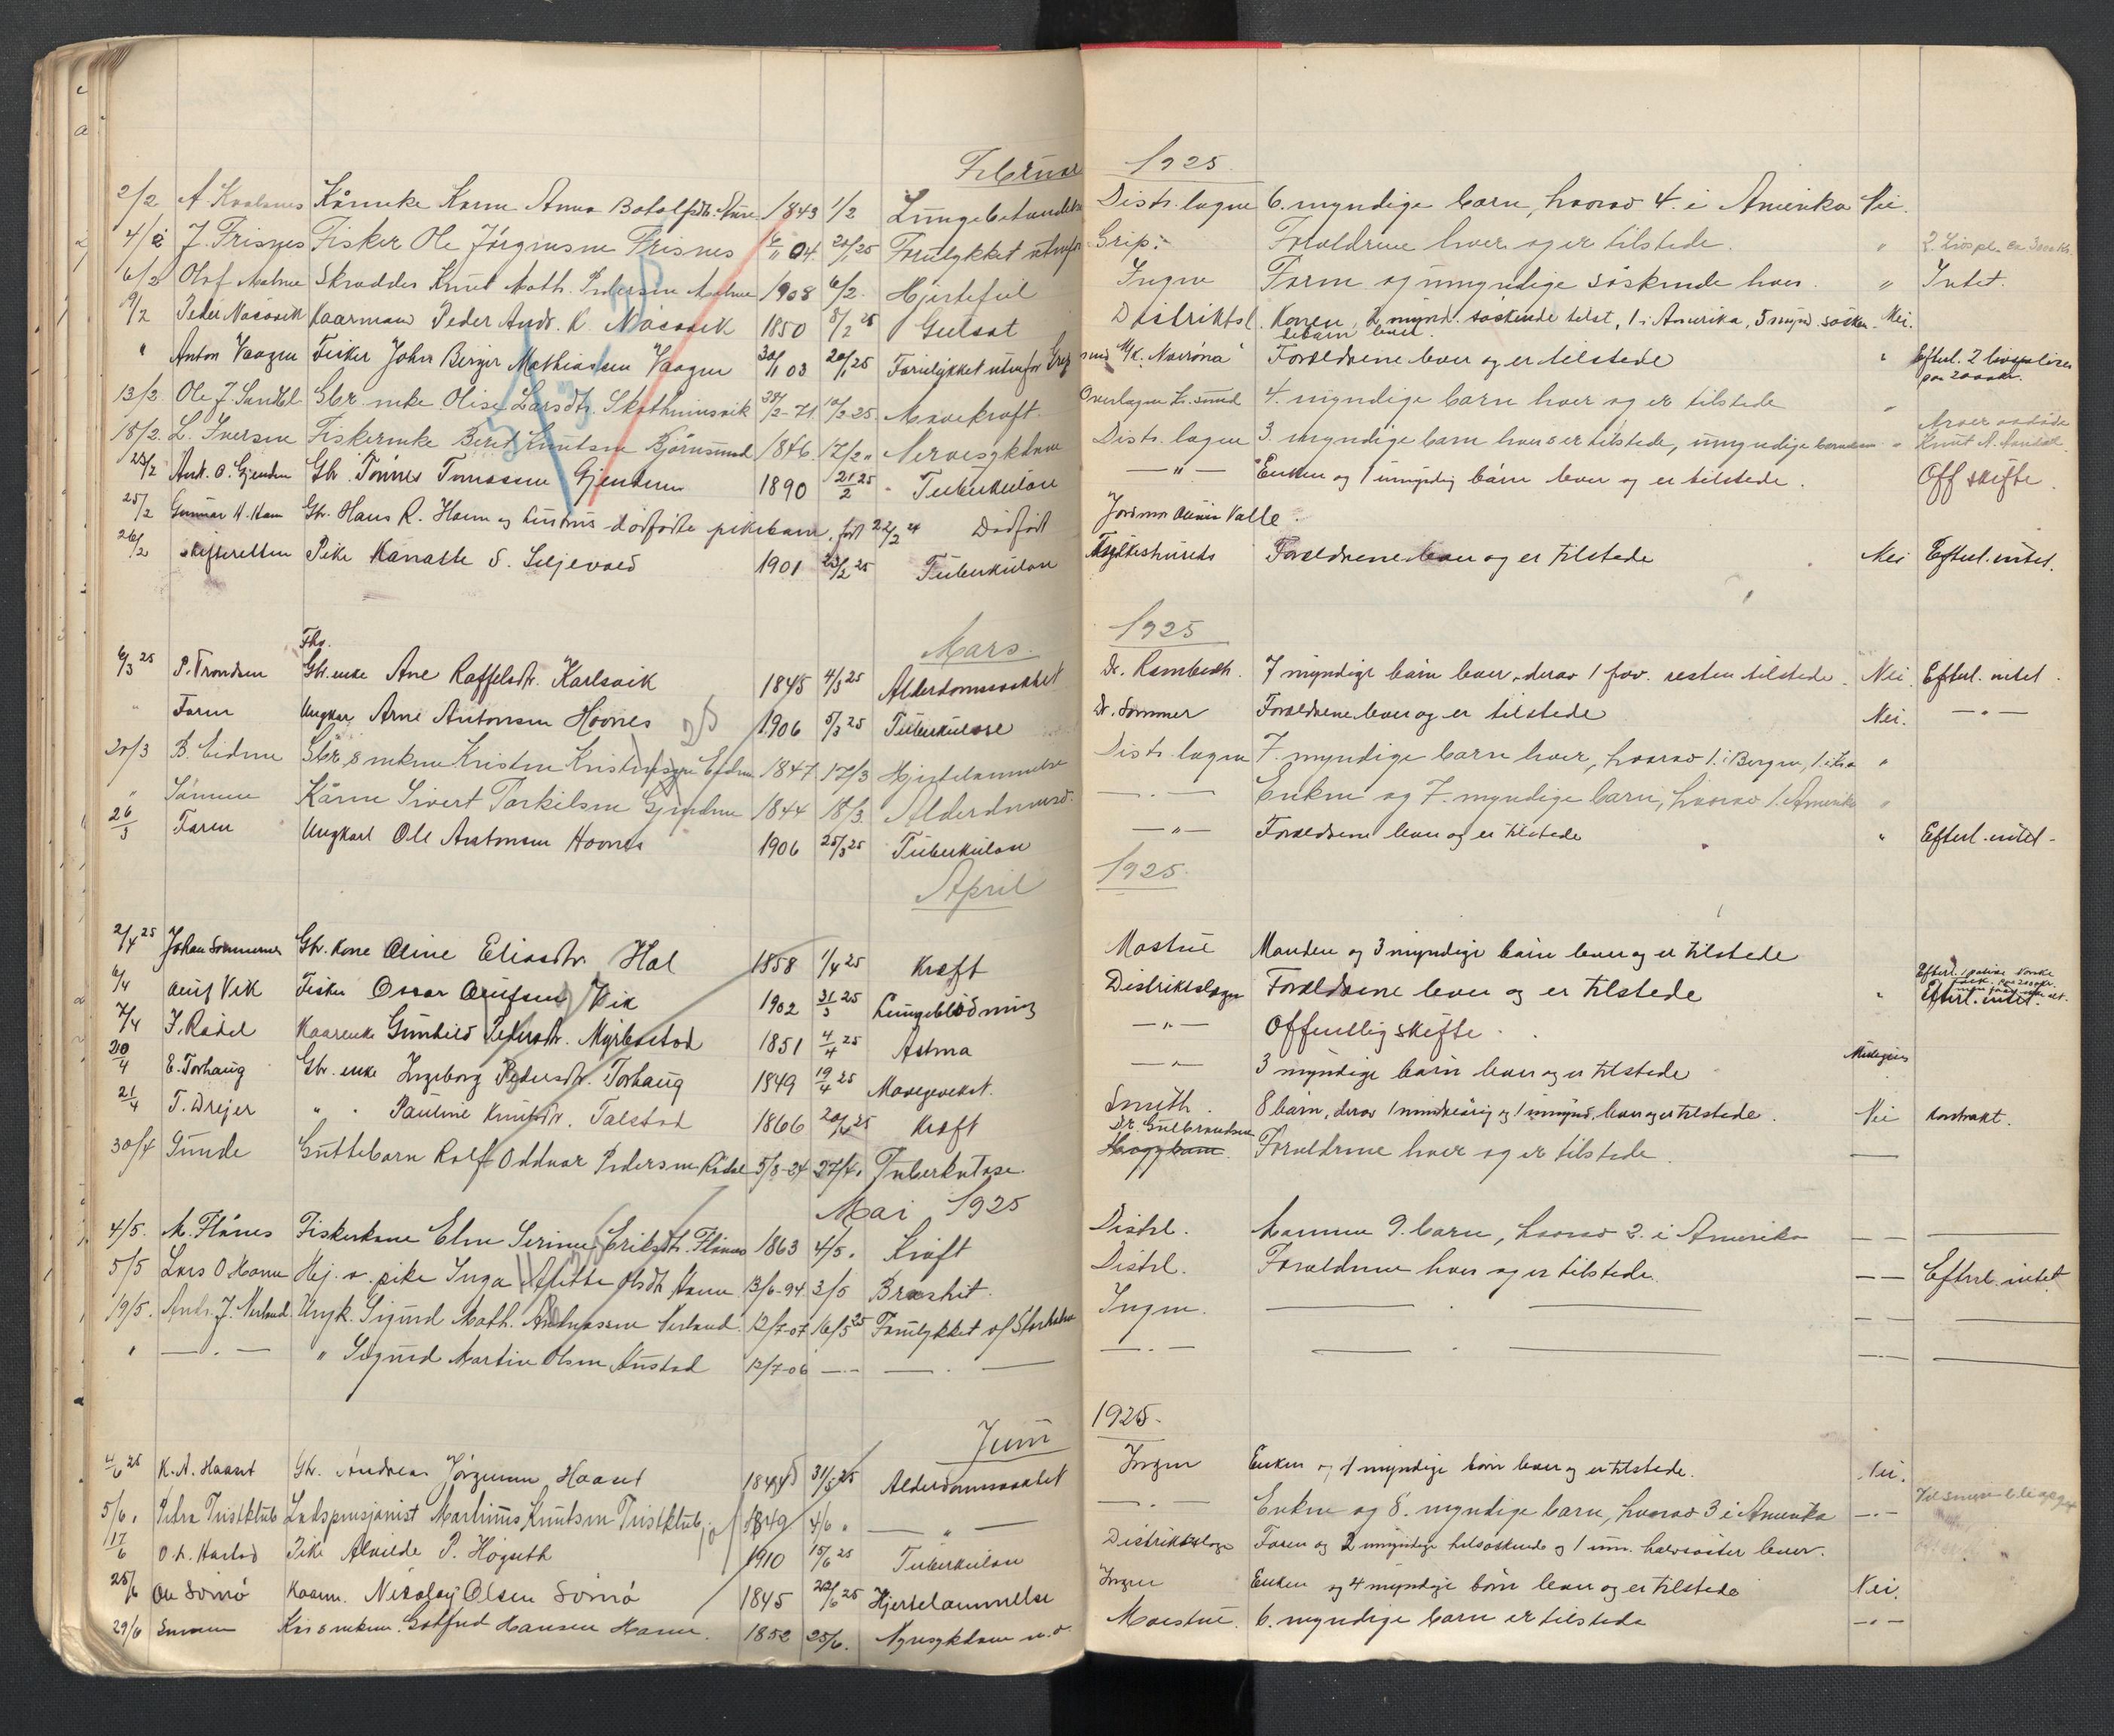 Februar 1925.
2/2 A Kvalsnes Kårenke Karen Anna Botolfsdtr. Aure 1843 1/2 Lungebetændelse Distr. lægen 6. myndige barn, hvorav 4. i Amerika Nei.
4/2 J. Frisnes Fisker Ole Jörgensen Frisnes 04. 20/1 25 Forulykket utenfor Grip. Foreldrene lever og er tilstede. "
6/2 Olaf Malme Skrædder Knut Math. Pedersen Malme 1908 6/2. Hjertefeil Ingen Faren og umyndige söskende lever. " Intet.
9/2 Peder Näsvik Kaarmand Peder Andr. K. Näsvik 1850 8/2 25 Gulsot Distriktsl. Konen, 2 mynd. söskende tilst, 1 i Amerika, 5 mynd. sösken- Nei.
debarn lever.
" Anton Vaagen Fisker Johan Berger Mathiassen Vaagen 03 20/1 25 Forulykket utenfor Grip med M/K. "Norröna" Foreldrene lever og er tilstede " Efterl. 2 livspoliser
paa 2000 kr.
13/2 Ole J. Sandbl Gbr. enke Olise Larsdtr. Skotheimsvik 71. 10/2-25. Mavekræft. Overlægen Kr.sund 4. myndige barn lever og er tilstede "
18/2. L. Iversen Fiskerenke Berit Knutsen Björnsund 1846. 17/2 " Nervesykdom Distr. lægen 3. myndige barn lever & er tilstede, umyndige barnebarn "
23/2 Andr. O. Gjendem Gbr. Tönnes Tomassen Gjendem 1890 21/2 25 Tuberkulose — " — Enken og 1 umyndig barn lever og er tilstede. Off skifte.
25/2 Gunnar H. Ham Gbr. Hans R. Hoem og hustrus dödfödte pikebarn, födt 22/2 24 Dödfödt Jordmor Olina Valle.
26/2 skifteretten Pike Kanatte S. Seljevold 1901 23/2 25 Tuberkulose Fylkeshusets Foreldrene lever og er tilstede Nei Efterl. intet.
Mars. 1925
Fhv.
6/3 25 P. Trondsen Gbr. enke Ane Raffelsdtr. Karlsvik 1845 4/3 25 Alderdomssvakhet Dr. Rambech. 7 myndige barn lever, derav 1 frav. resten tilstede. Nei. Efterl. intet.
" Faren Ungkar Arne Antonsen Hovnes 1906 5/3 25 Tuberkulose Dr. Sommer Foreldrene lever og er tilstede Nei. — " —
20/3 B. Eidem Gbr.s enkem. Kristen Kristensen Eidem 1847 17/3 Hjertelammelse Distr. lægen 7. myndige barn lever, hvorav 1. i Bergen, "
" Sönnen Kårm. Sivert Torkilsen Gjendem 1844 18/3. Alderdomssv. — " — Enken og 7. myndige barn, hvorav 1. Amerika "
26/3 Faren Ungkarl Ole Antonsen Hovnes 1906 25/3 25 Tuberkulose — " — Foreldrene lever og er tilstede " Efterl. intet.
April 1925.
2/4 25 Johan Sommernes Gbr. kone Oline Eliasdtr. Hol 1858 1/4 25 Kræft Mostue Manden og 3 myndige barn lever og er tilstede
6/4 Oluf Vik Fisker Oscar Olufsen Vik 1902 31/3 25 Lungeblödning Distriktslægen Foreldrene lever og er tilstede " Efterl. intet.
7/4 I. Rödal Kaarenke Gunhild Pedersdtr. Myrbostad 1851 4/4 25 Astma — " — Offentlig skifte.
20/4 E. Torhaug Gbr. enke Ingeborg Pedersdtr. Torhaug 1849 19/4 25 Mavegevekst. — " — 3 myndige barn lever og er tilstede
21/4 T. Drejer " " Pauline Knutsdtr. Talstad 1866 20/4 25 Kræft Smith. 8 barn, derav 1 mindreårig og 1 umynd. lever og er tilstede. Nei Kontrakt.
30/4 Gunde Guttebarn Rolf Oddvar Pedersen Rödal 5/8-24 27/4. Tuberkulose. Dr. Gulbrandsen Foreldrene lever og er tilstede. —
Mai 1925
4/5. M. Flånes Fiskerkone Elen Serine Eriksdtr. Flånes 1863 4/5. Kræft Distrl. Mannen 9. barn, hvorav 2. i Amerika — —
5/5 Lars O Hoem Hej. v. pike Inga Alette Olsdtr. Hoem 13/6-94 3/5 Bronkit. Distrl. Foreldrene lever og er tilstede. — — Efterl. intet.
19/5. Andr. J. Nerland Ungk. Sigurd Math. Andreassen Nerland 12/7-07 16/5 25 Forulykket af Storholm Ingen.
" — " — " Sigurd Martin Olsen Hustad 12/7-06 — " — — " —
Juni 1925.
4/6 25 K. A. Haaset Gbr. Andreas Jörgensen Haaset 1844 31/5 25 Alderdomssvakhet Ingen Enken og 4 myndige barn lever og er tilstede. Nei.
5/6. Peder Tverfklub Lodspensjonist Martinus Knutsen Tverfklub 1849 4/6 " — " — — " — Enken og 8. myndige barn, hvorav 3 i Amerika — " —
17/6 O. L. Harstad Pike Alvilde P. Högseth 1910 15/6 25 Tuberkulose Distriktslæge Faren og 2 umyndige helsöskende og 1 um. halvsöster lever.
25/6 Ole Sörnö Kaarm. Nikolay Olsen Sörnö 1845 22/6 25 Hjertelammelse Ingen Enken og 4 myndige barn lever og er tilstede Nei.
29/6 Gotfred Hansen Hoem. 1852 25/6. Nyresykdom m.v. Mostue. 6. myndige barn er tilstede — " —